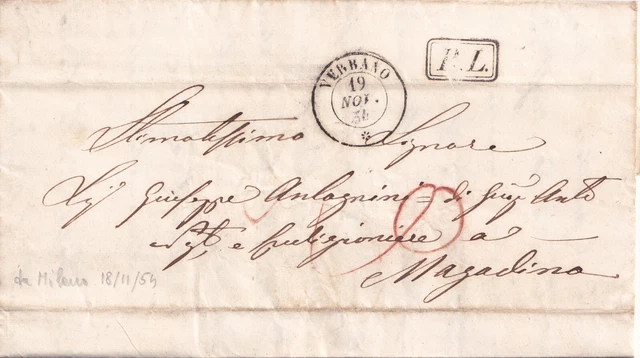 VERBANO
19
NOV.
54
P. L.
Stimatissimo Signore
Sig.r Giuseppe Antognini = di Giu.e Ant.o
e a
Magadino
da Milano 18/11/54